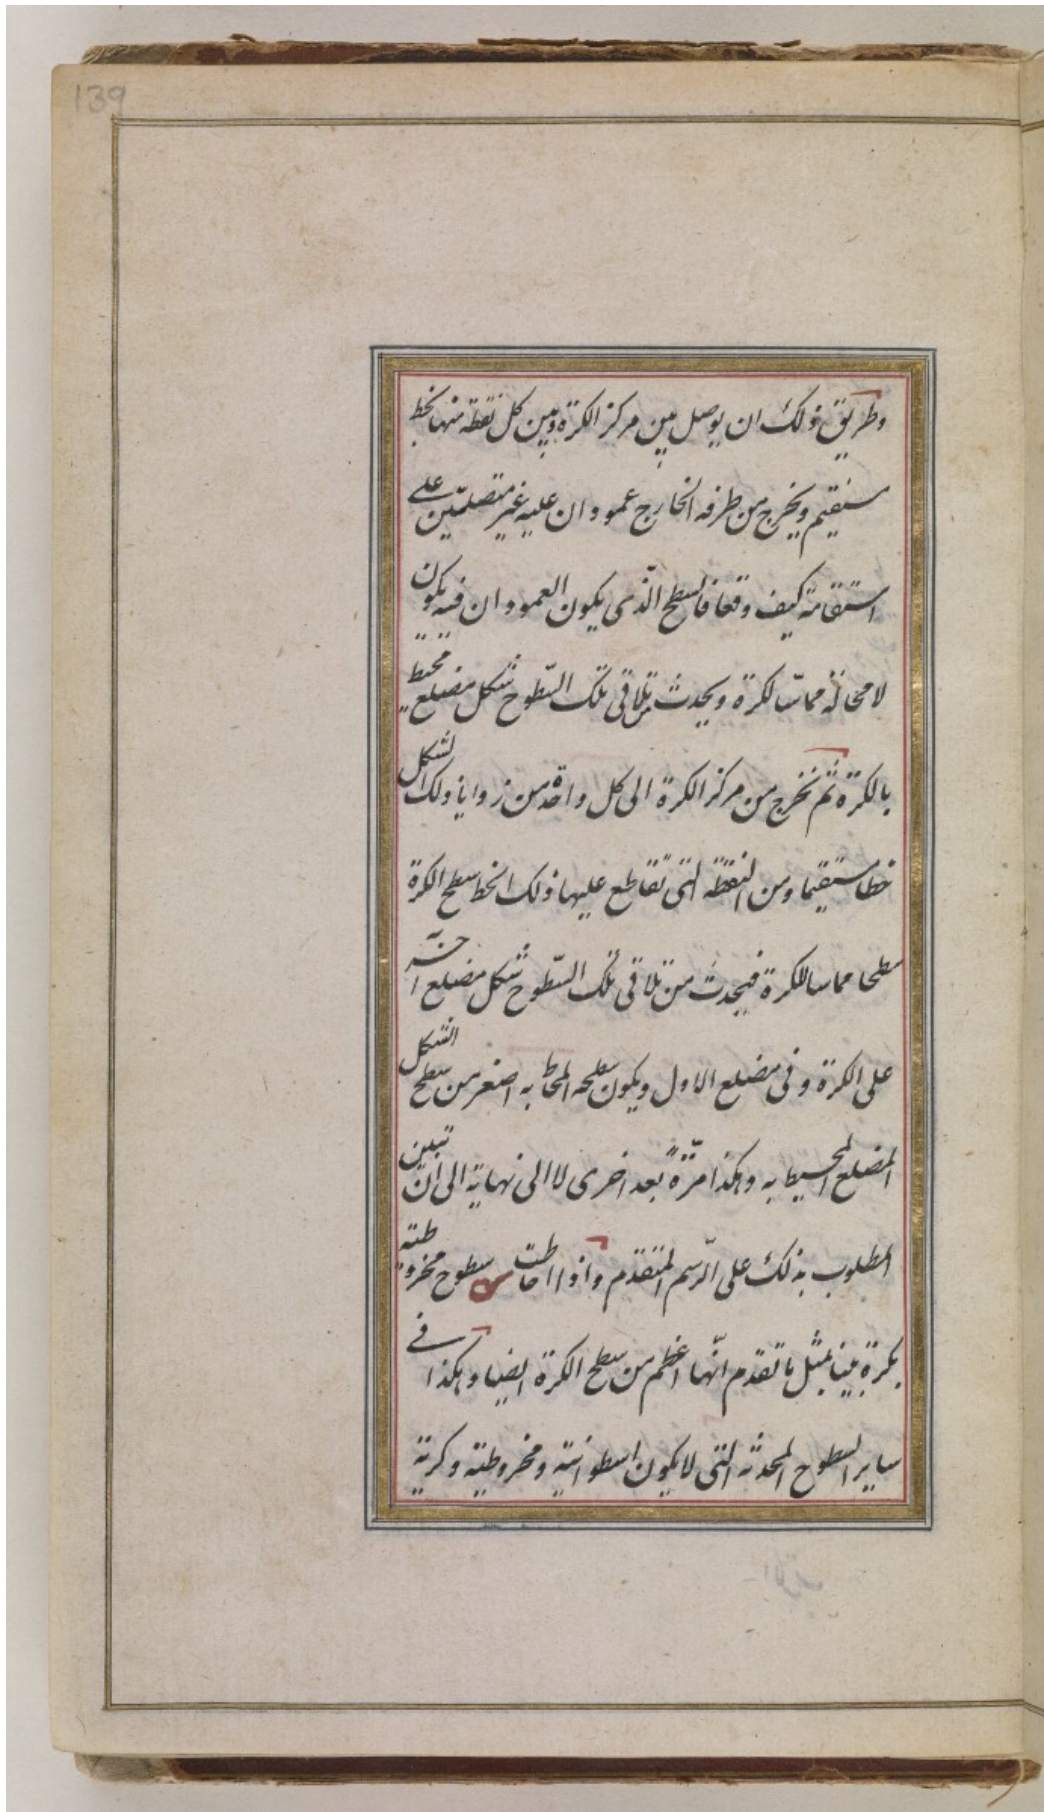 139
وطريق ذلك ان يوصل بين مركز الكرة وبين كل نقطة منها بخط
مستقيم ويخرج من طرفه الخارج عمودان عليه غير متصلين على
استقامة كيف وقعا فالسطح الّذى يكون العمودان فيه يكون
لا محالة مماسّا لكرة ويحدث من تلاقى تلك السّطوح شكل مضلع محيط
بالكرة ثم نخرج من مركز الكرة الى كل واحدة من زوايا ذلك الشكل
خطا مستقيما ومن النقطة التى تقاطع عليها ذلك الخط سطح الكرة
سطحا مماسا للكرة فيحدث من تلاقى تلك السّطوح شكل مضلع اخر
على الكرة وفى مضلع الاول ويكون سطحه المحاط به اصغر من سطح الشكل
المضلع المحيط به وهكذا مرّة بعد اخرى لا الى نهاية الى ان تبين
المطلوب بذلك على الرّسم المتقدم واذا احاطت سطوح مخروطية
بكرة بينا بمثل ما تقدم انّها اعظم من سطح الكرة ايضا وهكذا فى
ساير السطوح المحدثة التى لا يكون اسطوانية ومخروطية وكرية